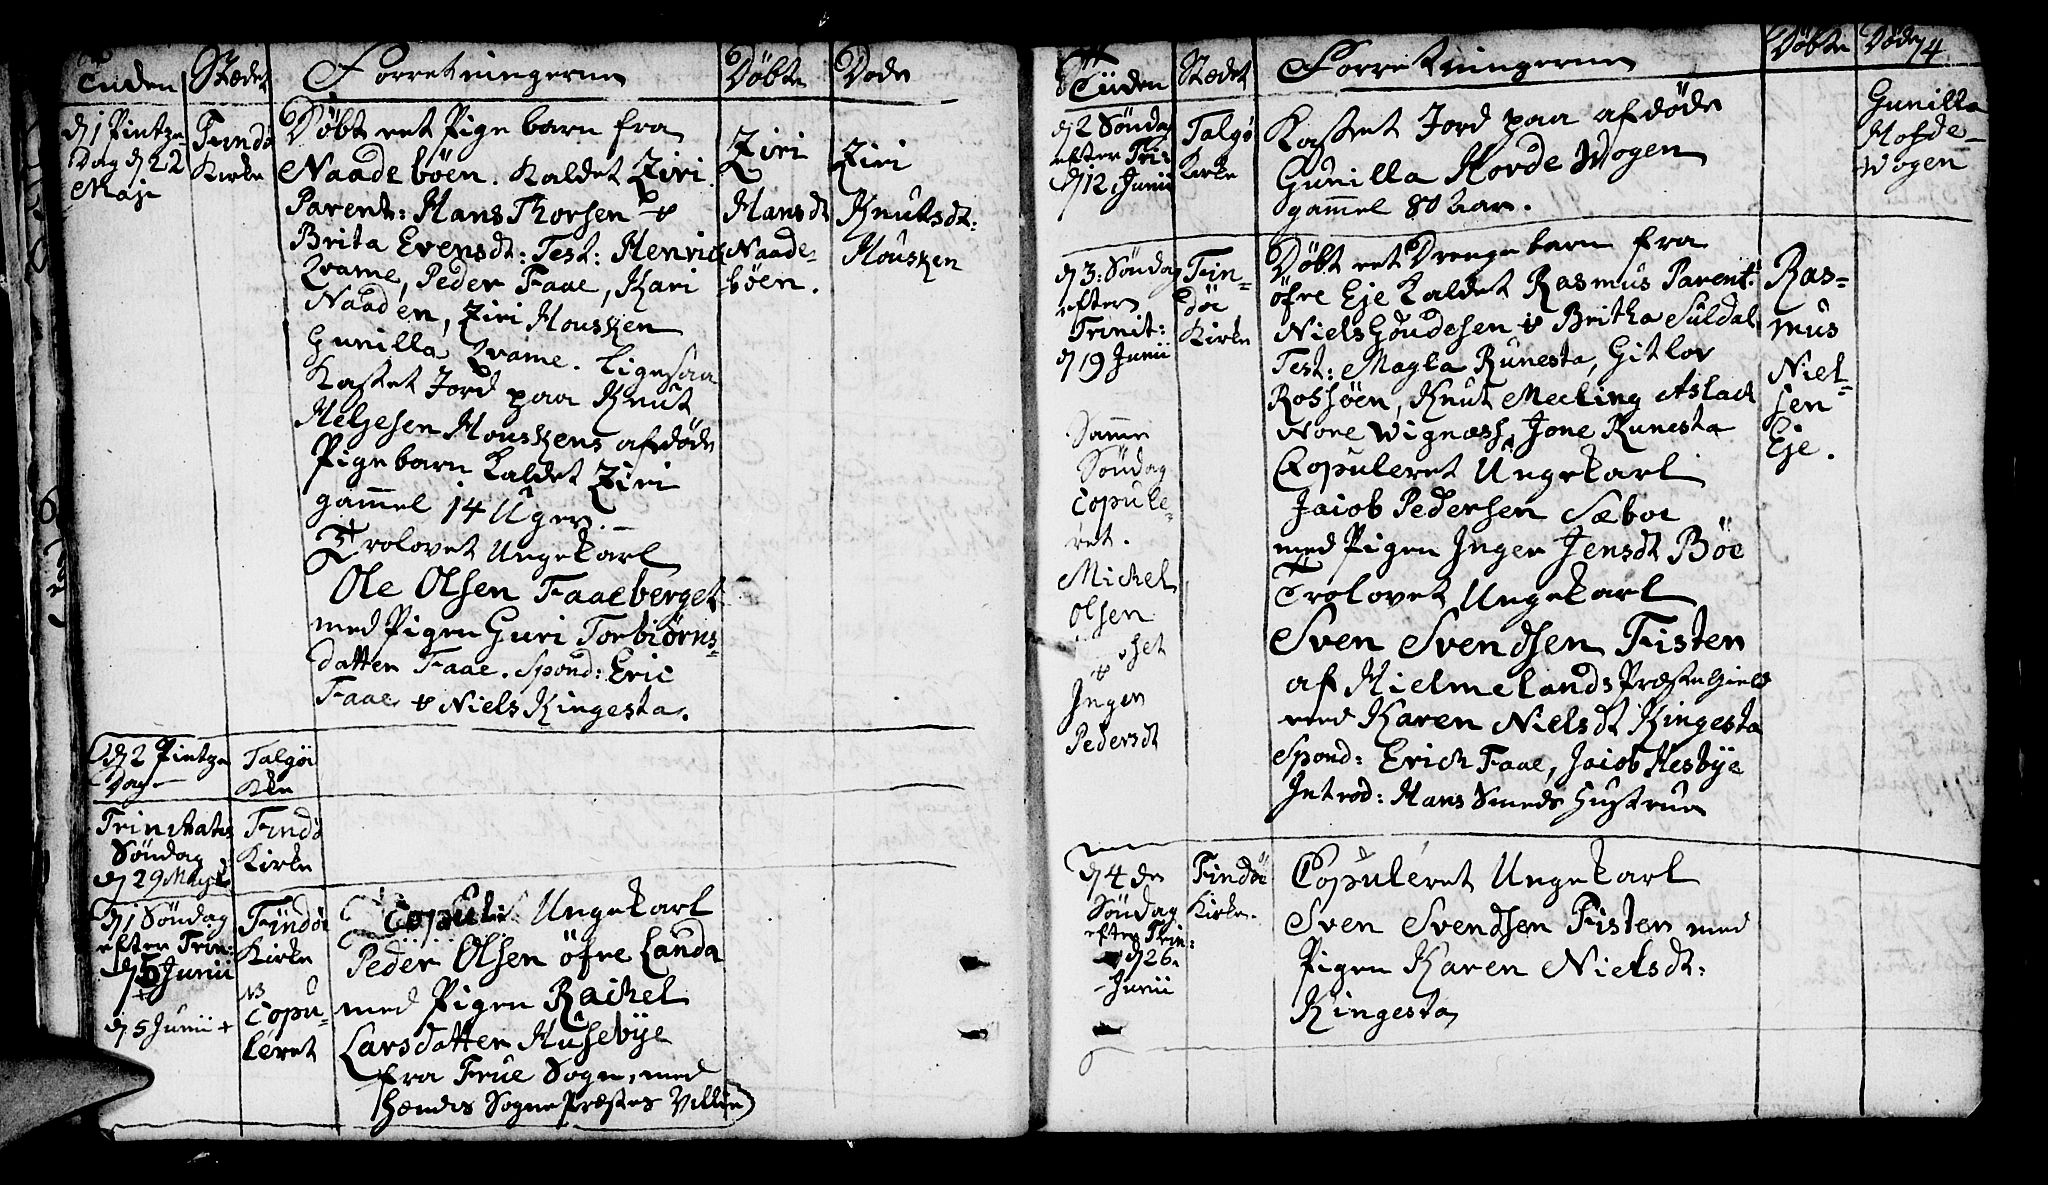 Tiiden
Stædet
Forretningerne
Döbte
Döde
d. 1 Pintze
Dag d. 22
Maje
Findö
Kirke
Döbt et Pige barn fra
Naadeböen. Kaldet Ziri.
Parent: Hans Thorsen &
Brita Evensdt: Test: Henric
Qvame, Peder Faae, Kari
Naaden, Ziri Housken
Gunilla Qvame. Ligesaa
Kastet Jord paa Knut
Heljesen Houskens afdöde
Pigebarn Kaldet Ziri
gammel 14 Uger. –
Trolovet Ungekarl
Ole Olsen Faaeberget
med Pigen Guri Torbiörns=
datter Faae. Spond: Eric
Faae & Niels Kingesta.
Ziri
Hansdt
Naade=
böen.
Ziri
Knutsdt:
Housken
d. 2 Pintze
Dag
Talgöe
Kke
Trinitatis
Söndag
d. 29 Maji
Findö
Kirke
d. 1 Söndag
efter Trin:
d. 5 Junii
+
d. 5 Junii +
Findöe
Kirke
NB
Copu=
leret
Ungekarl
Peder Olsen öfre Landa
med Pigen Rachel
Larsdatter Husebye
fra Frue Sogn, med
hendes SognePræstes Villie
74
Tiiden
Stædet
Forretningerne
Döbte
Döde
d. 2 Söndag
efter Tri:
d. 12 Junii
Talgö
Kirke
Kastet Jord paa afdöde
Gunilla Horde Wogen
gammel 80 aar.
Gunilla
Horde=
Wogen
d. 3: Söndag
efter
Trinit:
d. 19 Junii
Fin=
döe
Kirke
Döbt et Drenge barn fra
öfre Eje kaldet Rasmus Parent:
Niels Goudesen & Britha Suldal
Test: Magla Runesta, Gitlov
Rossöen, Knut Meeling Aslach
Nore Wignæss, Jone Runesta
Copuleret Ungekarl
Jacob Pedersen Sæboe
med Pigen Inger Jensdt Böe
Trolovet Ungekarl
Sven Svendsen Fisten
af Hielmelands Præstegield
med Karen Nielsdt Kingesta
Spond: Erich Faae, Jacob Hesbye
Introd: Hans Smeds Hustrue
Ras=
mus
Niel=
sen
Eje.
Samme
Söndag
Copule=
ret.
Michel
Olsen
&
Inger
Pedersdt
d. 4 de
Söndag
efter Trin:
d. 26.
Junii
Findöe
Kirke.
Copuleret Ungekarl
Sven Svendsen Fisten med
Pigen Karen Nielsdt:
Kingesta